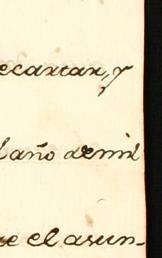 ecartar, y
l año de mil
ue el asun-